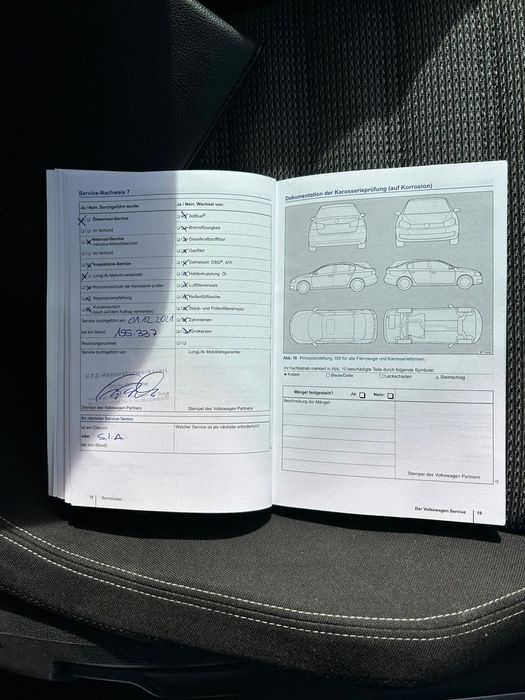 Service-Nachweis 7
Ja / Nein. Durchgeführt wurde:
Ölwechsel-Service
im Verbund
Intervall-Service
inklusive Motorölwechsel
im Verbund
Inspektions-Service
LongLife Motoröl verwendet
Korrosionsschutz der Karosserie prüfen
Reparaturempfehlung
Kundenwunsch
(siehe auf dem Auftrag vermerken)
Service durchgeführt am: 01.12.2021
bei km-Stand: 195.337
Rechnungsnummer:
Service durchgeführt von
Stempel des Volkswagen Partners
Ja / Nein. Wechsel von:
AdBlue®
Bremsflüssigkeit
Dieselkraftstofffilter
Gasfilter
Getriebeöl: DSG®, ATF
Haldexkupplung: Öl
Luftfiltereinsatz
Reifenfüllflasche
Staub- und Pollenfiltereinsatz
Zahnriemen
Zündkerzen
LongLife Mobilitätsgarantie:
Stempel des Volkswagen Partners
Ihr nächster Service-Termin
ist am (Datum):
oder S.I.A.
bei (km-Stand):
Welcher Service ist als nächster erforderlich?
18 Serviceplan
Dokumentation der Karosserieprüfung (auf Korrosion)
Abb. 10 Prinzipdarstellung. Gilt für alle Fahrzeuge und Karosserieformen.
Ihr Fachbetrieb markiert in Abb. 10 beschädigte Teile durch folgende Symbole:
Kratzer Beule/Delle Lackschaden Steinschlag
Mängel festgestellt? Ja: Nein:
Beschreibung der Mängel:
Stempel des Volkswagen Partners
Der Volkswagen Service 19